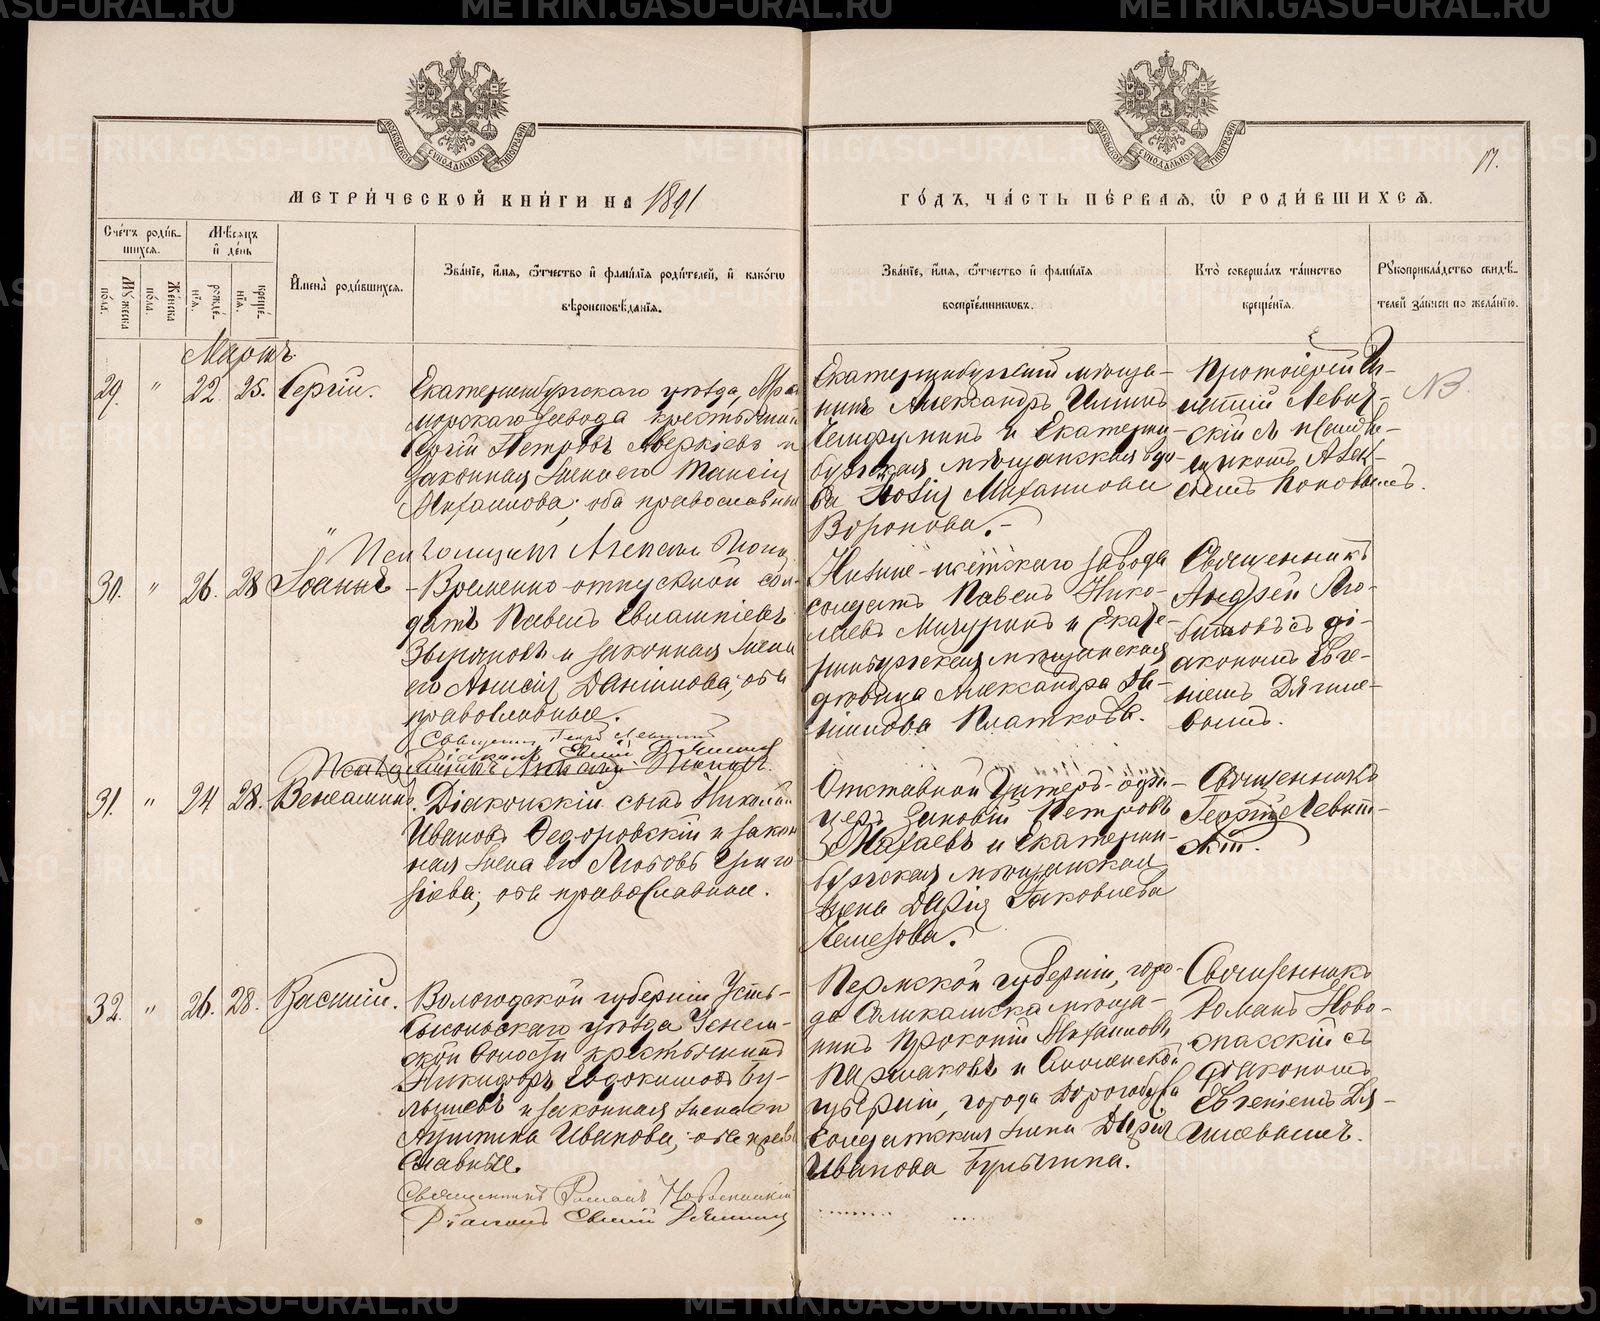 METRIKI.GASO-URAL.RU
МОСКОВСКОЙ СѴНОДАЛЬНОЙ ТИПОГРАФІИ
МОСКОВСКОЙ СѴНОДАЛЬНОЙ ТИПОГРАФІИ
17.
МЕТРИ́ЧЕСКОЙ КНИ́ГИ НА 1891
ГО́ДЪ, ЧА́СТЬ ПЕ́РВАѦ, Ѡ҆ РОДИ́ВШИХСѦ.
Сче́тъ роди́в-
шихсѧ.
Мꙋ́жеска по́ла.
Же́нска по́ла.
Мѣ́сѧцъ
и҆ де́нь
рожде́-нїѧ.
креще́-нїѧ.
И҆мена̀ роди́вшихсѧ.
Зва́нїе, и҆́мѧ, ѻ҆́тчество и҆ фами́лїѧ роди́телей, и҆ какоѓѡ
вѣроисповѣ́данїѧ.
Зва́нїе, и҆́мѧ, ѻ҆́тчество и҆ фами́лїѧ
воспрїе́мникѡвъ.
Кто̀ соверша́лъ та́инство
креще́нїѧ.
Рꙋкоприкла́дство свидѣ́-
телей за́писи по жела́нїю.
Мартъ.
29. " 22. 25. Сергій.
Екатеринбургскаго уѣзда, Мра
морскаго завода крестьянинъ
Сергій Петровъ Аверкіевъ и
законная жена его Таисія
Михаилова; оба православные
Екатеринбургскій мѣща-
нинъ Александръ Ильинъ
и Екатерин
бургская мѣщанская вдо-
ва Михаилова
Воронова.-
Протоіерей Иг-
натій Левит-
скій съ псаломщи-
комъ Алек-
сѣемъ Поповымъ.
NB.
Псаломщикъ Алексѣй Попо
30. " 26. 28 Іоаннъ
- Временно-отпускной сол-
датъ Павелъ Евлампіевъ
Звѣревъ и законная жена
его Анисія Даніилова; оба
православные.
Священникъ Левитскій
Нижне-исетскаго завода
солдатъ Павелъ Нико-
лаевъ Мичуринъ и Екате-
ринбургская мѣщанская
дѣвица Александра
Платкова.
Священникъ
Андрей Лю-
битовъ съ ді-
акономъ Евге-
ніемъ Дягиле-
вымъ.
31. " 24 28. Веніаминъ.
Діаконскій сынъ Николай
Ивановъ Ѳедоровскій и закон
ная жена его Любовь Григо
рьева; оба православные.
Отставной Унтеръ-офи-
церъ Зиновій Петровъ
и Екатерин-
бургская мѣщанская
жена Дарія Іаковлева
Чемезова.
Священникъ
Георгій Левит-
скій.
32. " 26. 28. Василій.
Вологодской губерніи Усть-
сысольскаго уѣзда
ской волости крестьянинъ
Никифоръ Евдокимовъ Бу-
лышевъ и законная жена его
Агрипина Иванова; оба прав
славные.
Священникъ Романъ Новоспасскій
Діаконъ Евгеній Дягилевъ
Пермской губерніи, горо-
да Соликамска мѣща-
нинъ Прокопій Михаиловъ
Паршаковъ и Смоленской
губерніи, города Дорогобужа
солдатская жена Дарія
Иванова Булыгина.
Священникъ
Романъ Ново-
спасскій съ
діакономъ
Евгеніемъ Дя-
гилевымъ.